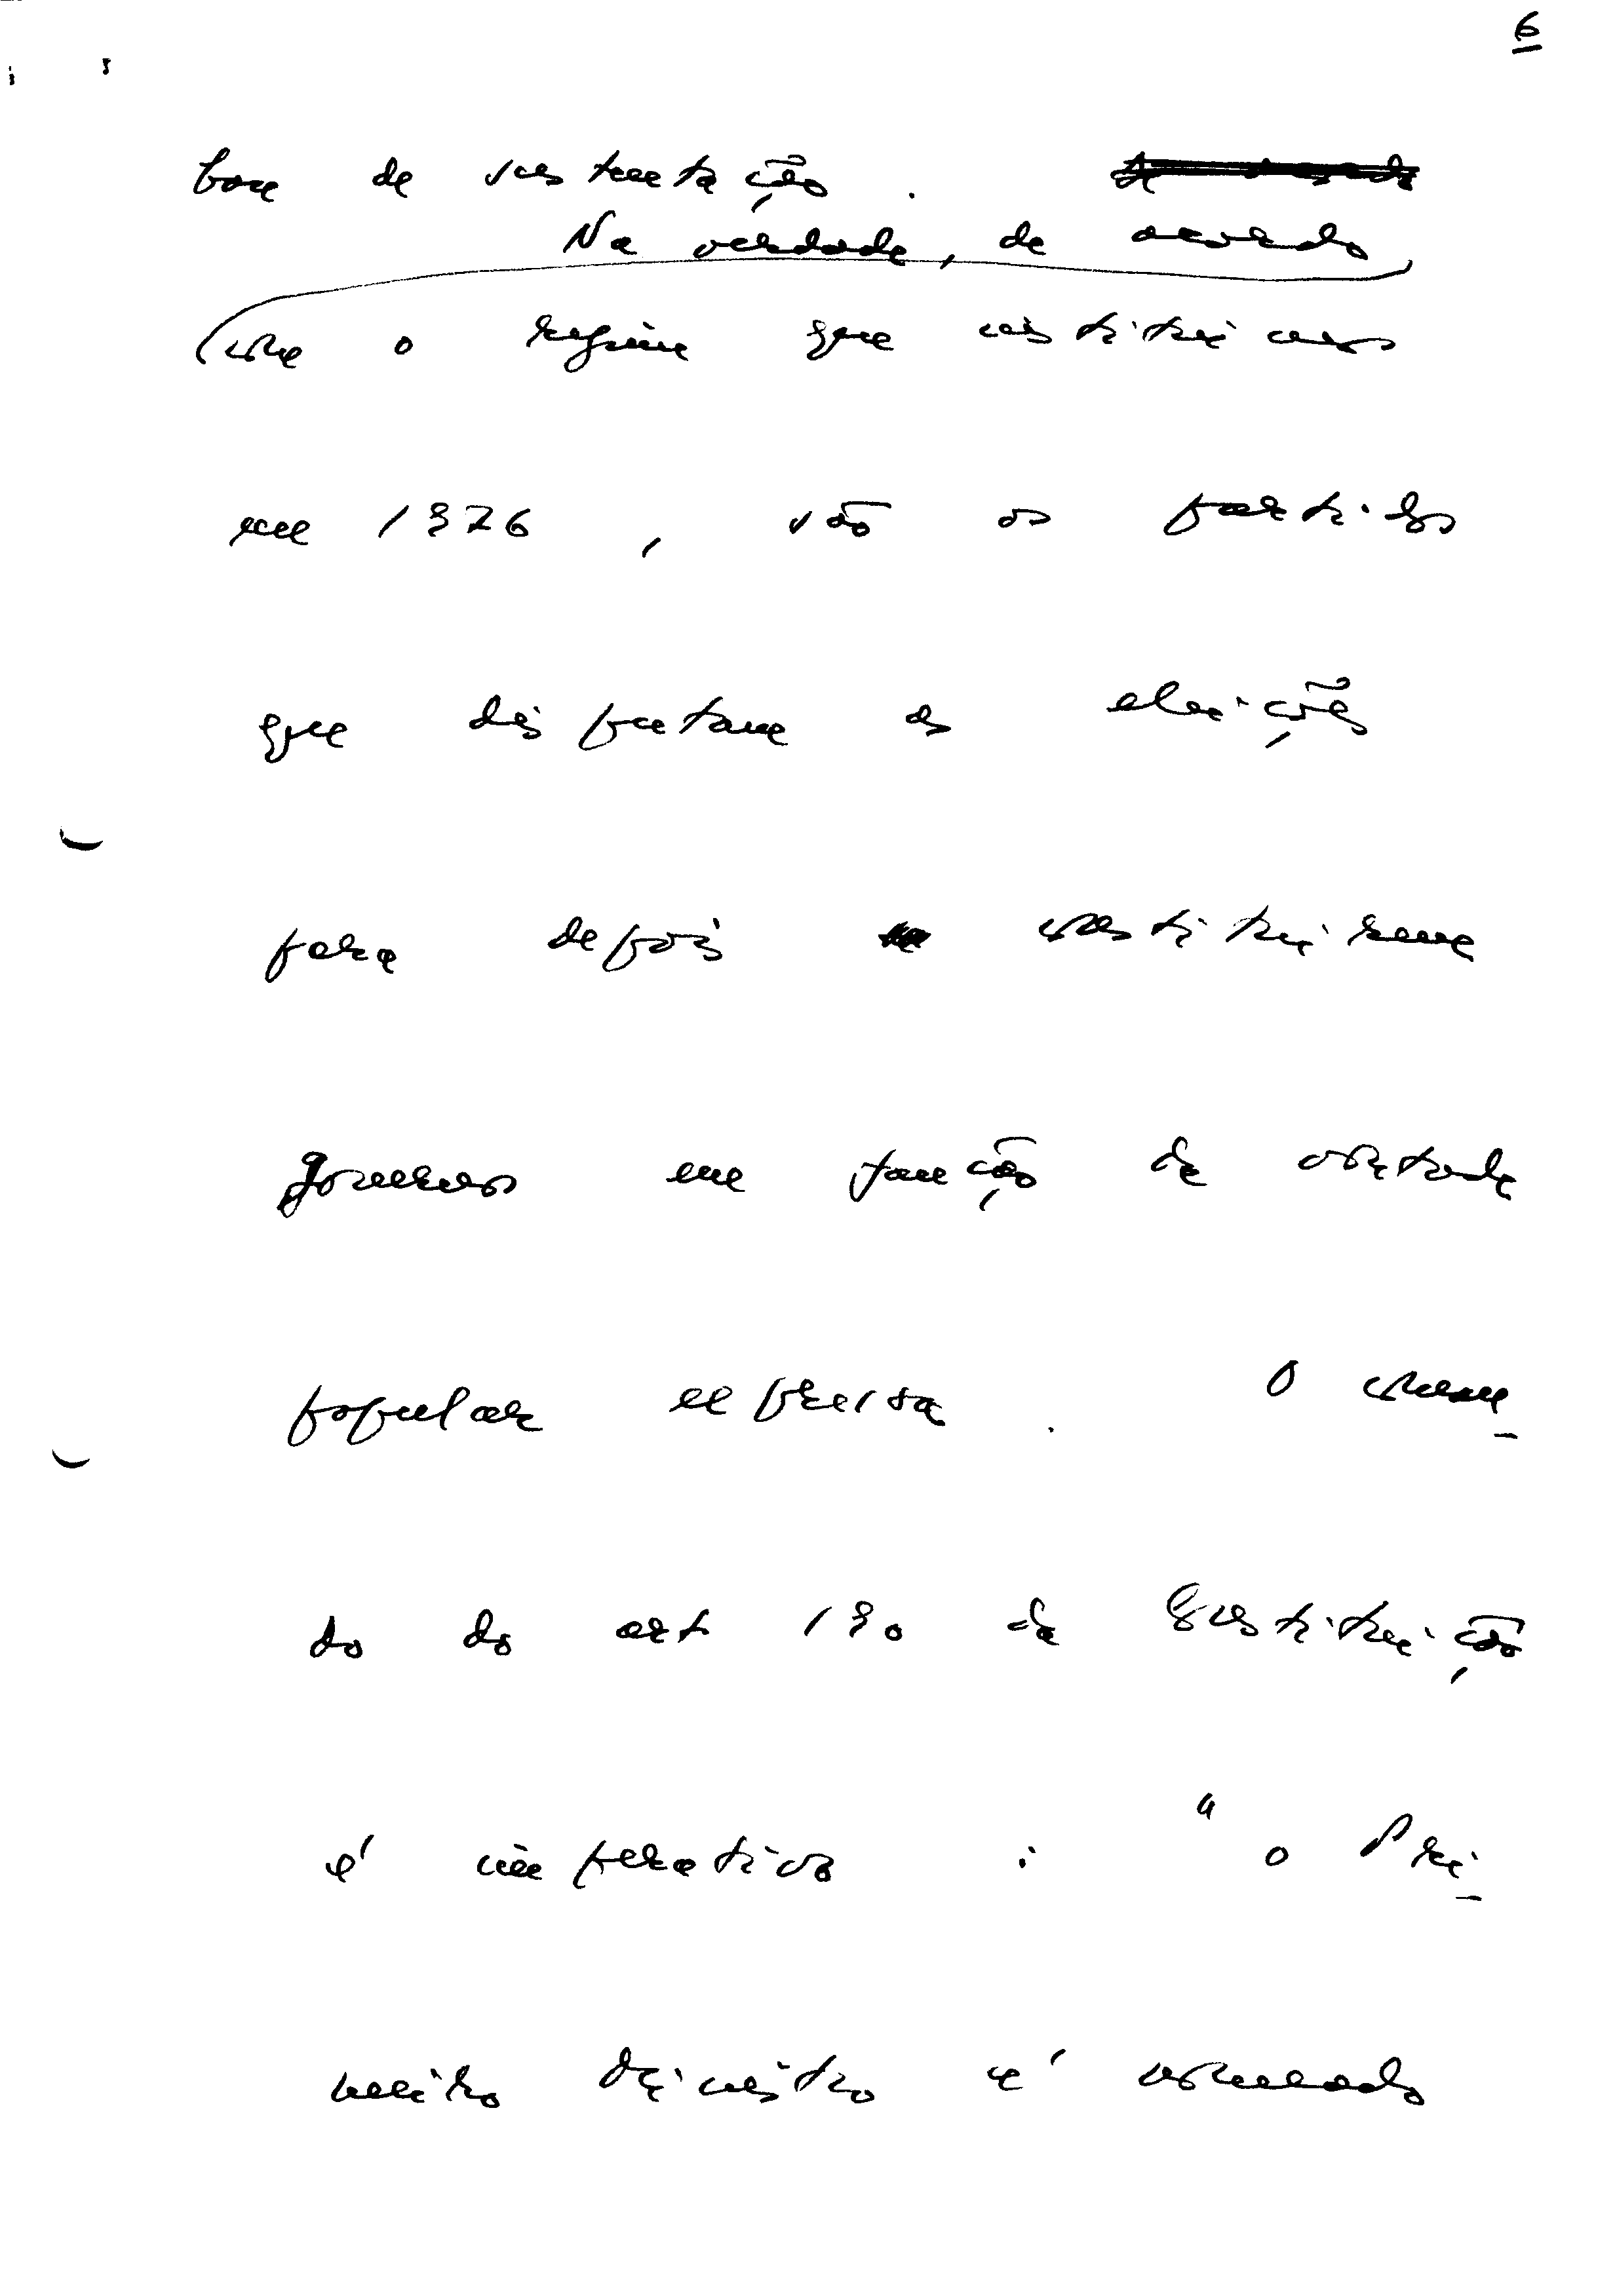 6
base de sustentação.
Na verdade, de acordo
com o regime que instituímos
em 1976, são os partidos
que disputam as eleições
para depois constituirem
governos em função da vontade
popular expressa. O coman_
do do art 190 da Constituição
é imperativo: "o Pri_
meiro Ministro é nomeado